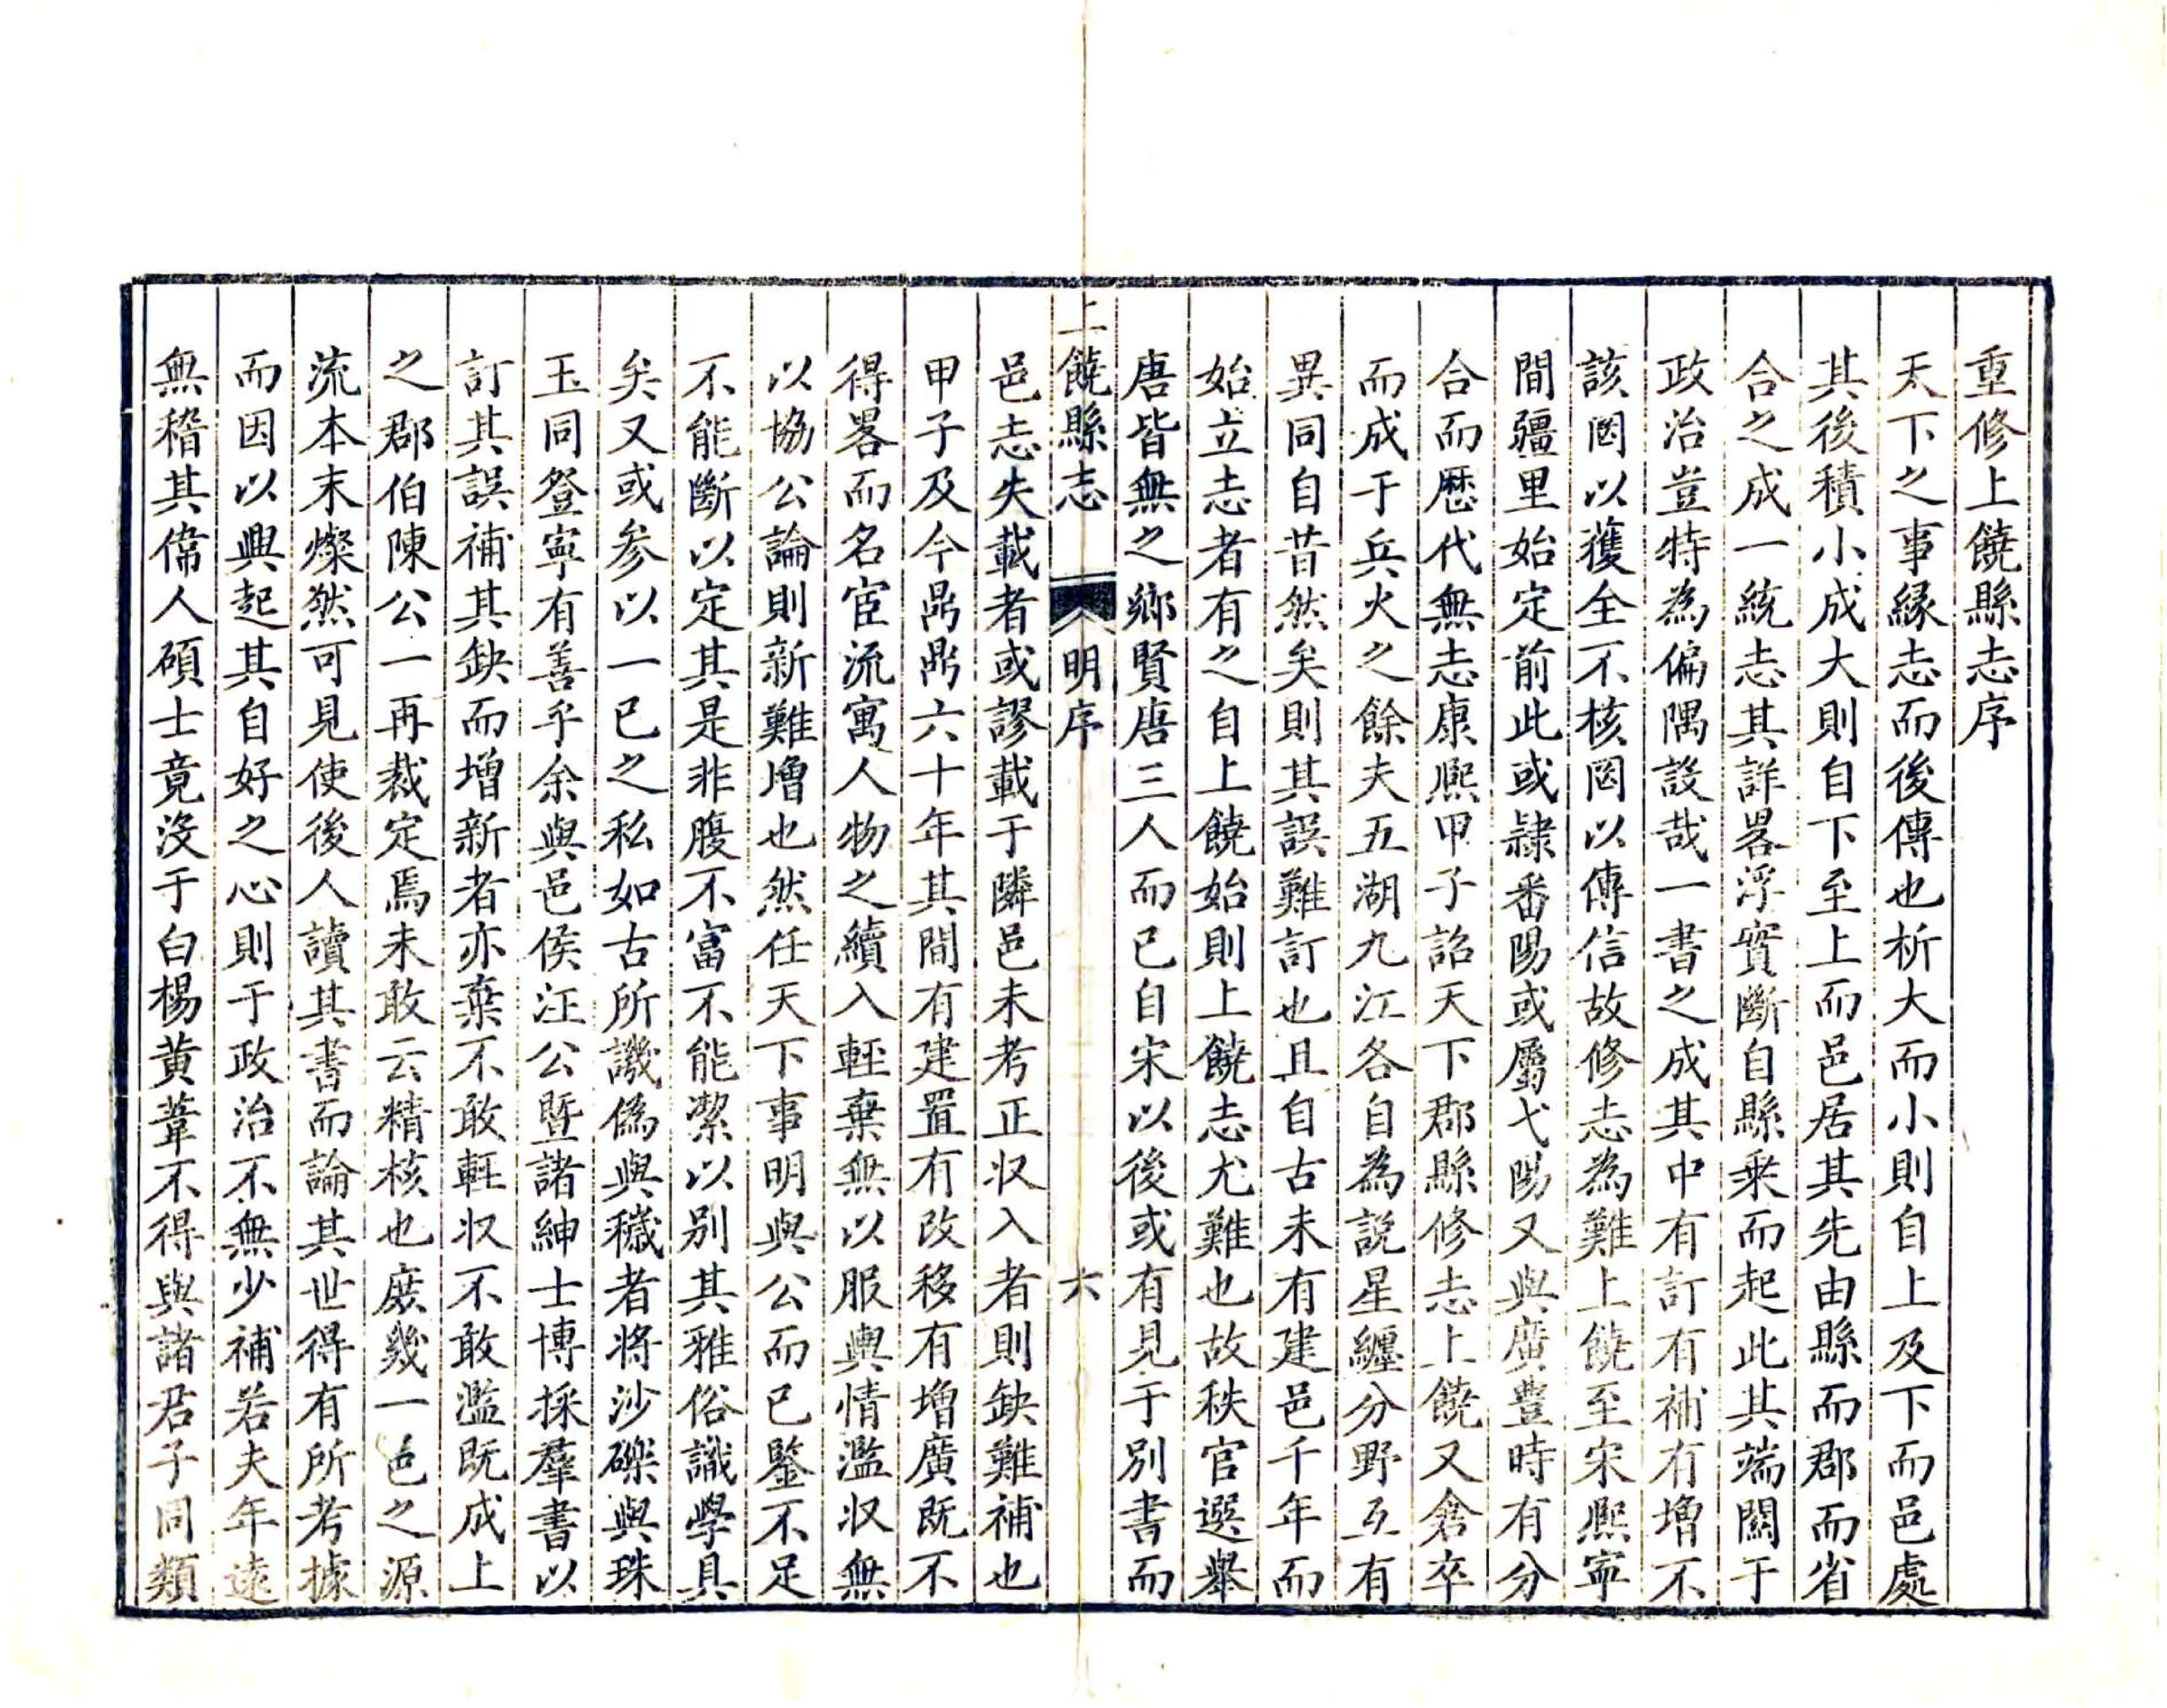 重修上饒縣志序
天下之事緣志而後傳也析大而小則自上及下而邑處
其後積小成大則自下至上而邑居其先由縣而郡而省
合之成一統志其詳畧浮實斷自縣乘而起此其端關于
政治豈特為偏隅設哉一書之成其中有訂有補有增不
該罔以獲全不核罔以傳信故修志為難上饒至宋熙寧
間疆里始定前此或隷番陽或屬弋陽又與廣豊時有分
合而歷代無志康熙甲子詔天下郡縣修志上饒又倉卒
而成于兵火之餘夫五湖九江各自為說星纏分野互有
異同自昔然矣則其誤難訂也且自古未有建邑千年而
始立志者有之自上饒始則上饒志尤難也故秩官選舉
唐皆無之鄉賢唐三人而已自宋以後或有見于別書而
上饒縣志 明序 六
邑志失載者或謬載于隣邑未考正収入者則缺難補也
甲子及今鼎鼎六十年其間有建置有改移有增廣既不
得畧而名宦流寓人物之續入輕棄無以服輿情濫収無
以協公論則新難增也然任天下事明與公而已鑒不足
不能斷以定其是非腹不富不能潔以別其雅俗識學具
矣又或参以一已之私如古所譏偽與穢者將沙礫與珠
玉同登寧有善乎余與邑侯汪公暨諸紳士博採羣書以
訂其誤補其缺而增新者亦棄不敢輕収不敢濫既成上
之郡伯陳公一再裁定焉未敢云精核也庶幾一邑之源
流本末燦然可見使後人讀其書而論其世得有所考據
而因以興起其自好之心則于政治不無少補若夫年遠
無稽其偉人碩士竟沒于白楊黃葦不得與諸君子同類